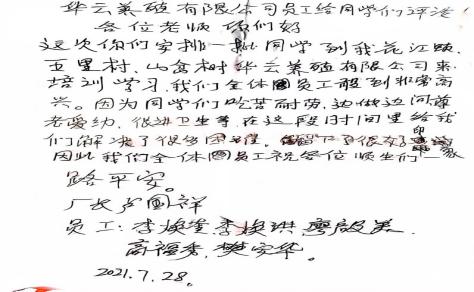 华云养殖有限公司员工给同学们评语
各位老师 你们好
这次你们安排一批同学到我花江路
五里村,山窝树华云养殖有限公司来
培训学习,我们全体员工感到非常高
兴。因为同学们吃苦耐劳,边做边问尊
老爱幼,很讲卫生等,在这段时间里给我
们解决了很多困难。 留下了很好印象
因此我们全体员工祝各位师生们一
路平安。
厂长 卢国祥
员工:李焕 李焕琪.廖 美.
高福秀.樊安华.
2021.7.28.